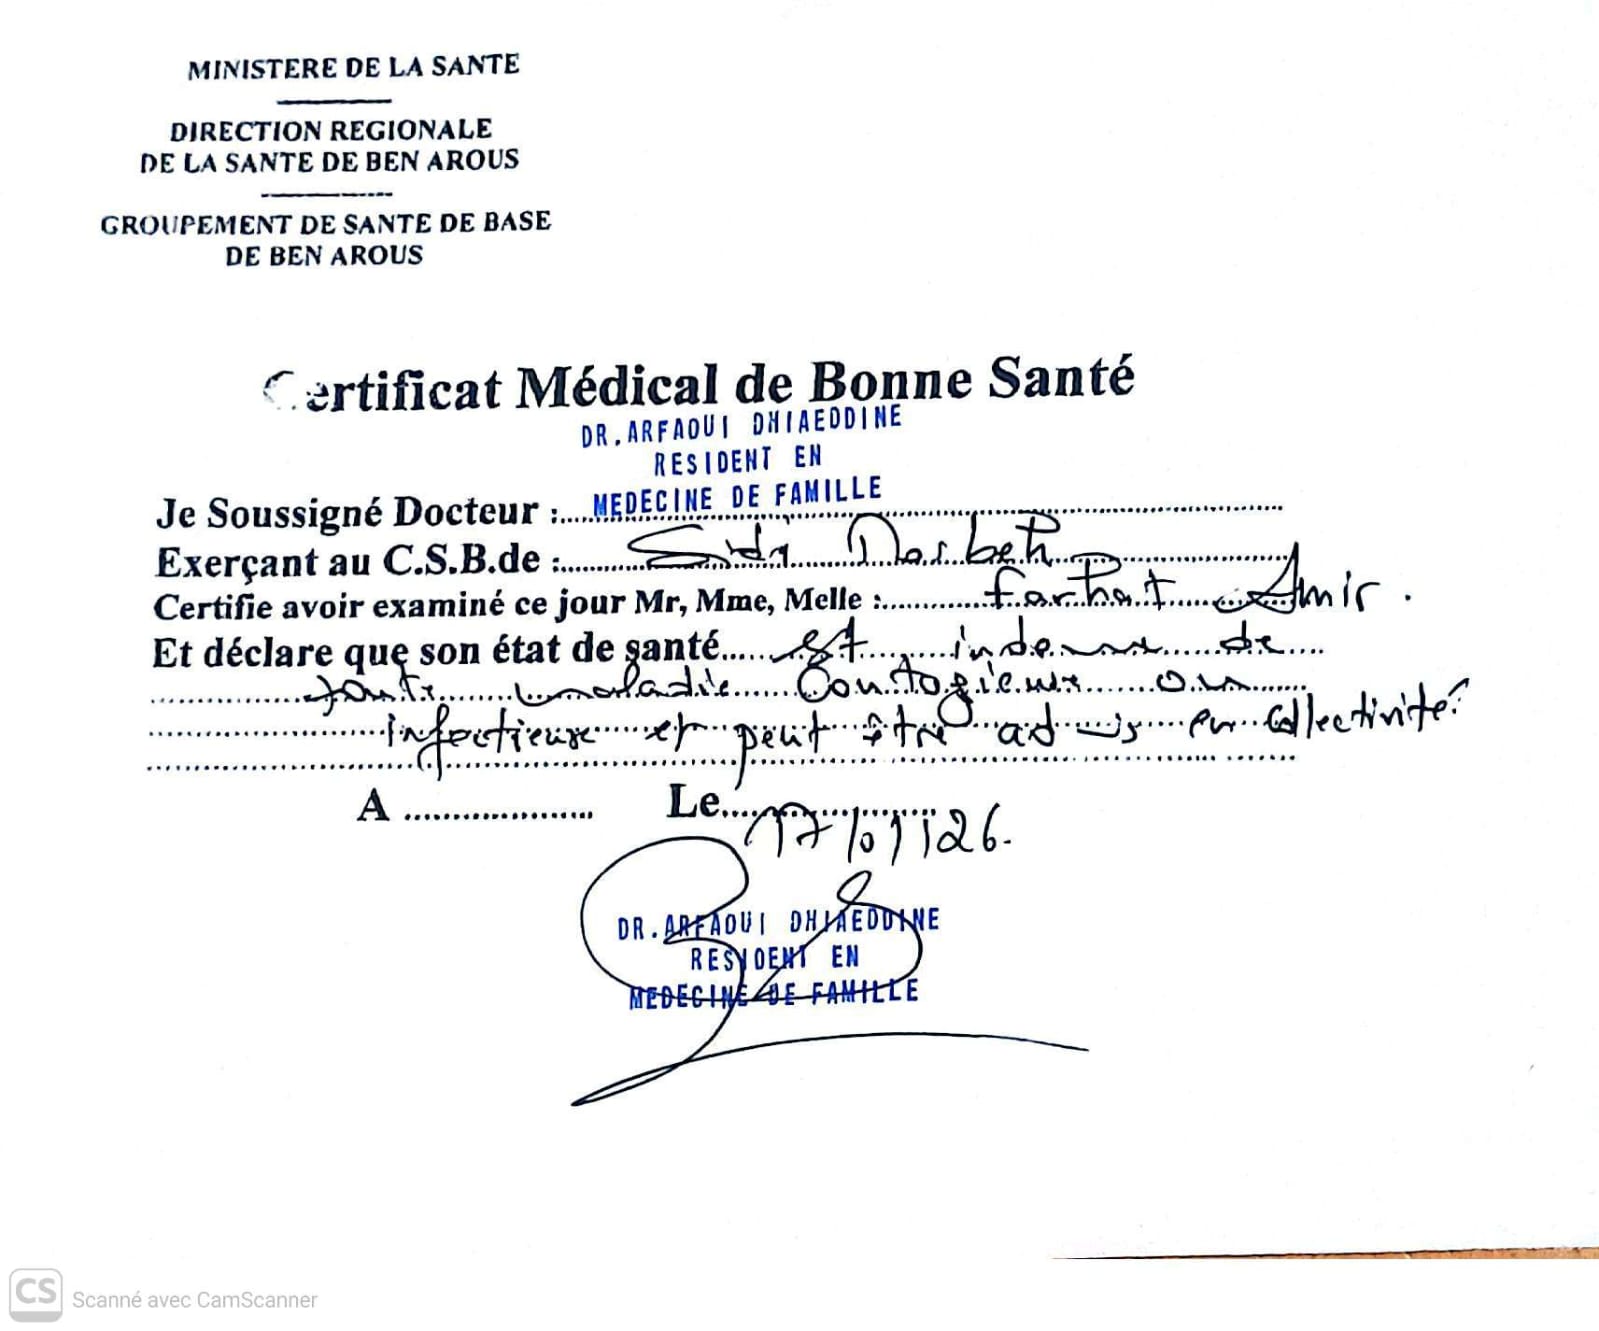 MINISTERE DE LA SANTE
DIRECTION REGIONALE
DE LA SANTE DE BEN AROUS
GROUPEMENT DE SANTE DE BASE
DE BEN AROUS
Certificat Médical de Bonne Santé
DR.ARFAOUI DHIAEDDINE
RESIDENT EN
MEDECINE DE FAMILLE
Je Soussigné Docteur :
Exerçant au C.S.B.de : Sidi
Certifie avoir examiné ce jour Mr, Mme, Melle : Farhat Amir.
Et déclare que son état de santé est indemne de
toute maladie contagieuse ou
infectieuse et peut être admis en collectivité.
A Le 17/01/26.
DR.ARFAOUI DHIAEDDINE
RESIDENT EN
MEDECINE DE FAMILLE
CS Scanné avec CamScanner